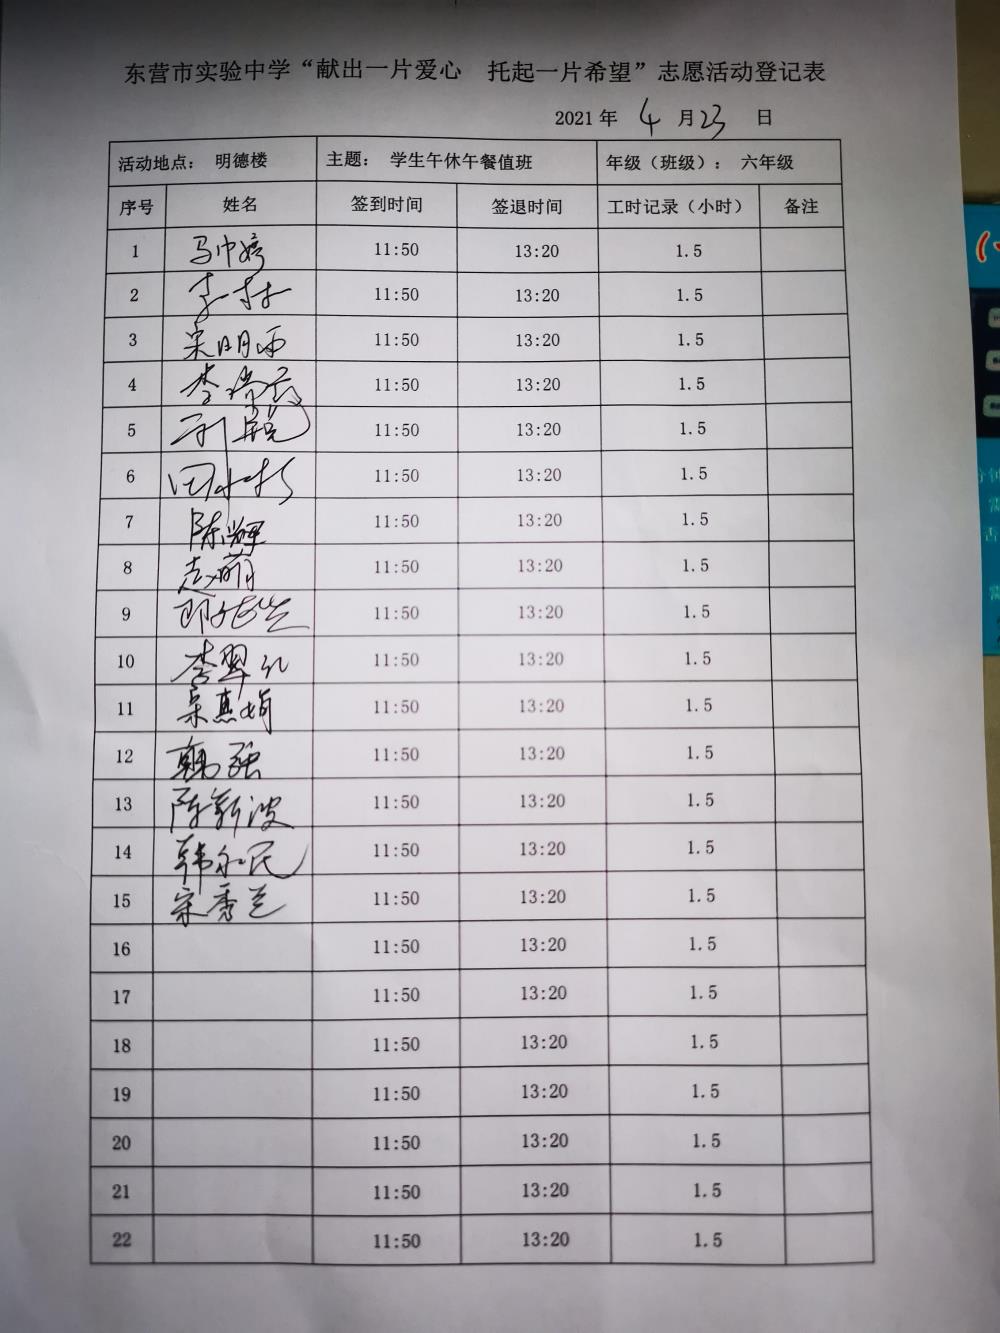 东营市实验中学“献出一片爱心 托起一片希望”志愿活动登记表
2021 年 4 月 23 日
活动地点： 明德楼 主题： 学生午休午餐值班 年级（班级）： 六年级
序号 姓名 签到时间 签退时间 工时记录（小时） 备注
1 马巾婷 11:50 13:20 1.5
2 李 11:50 13:20 1.5
3 宋明雨 11:50 13:20 1.5
4 李瑞 11:50 13:20 1.5
5 刘 11:50 13:20 1.5
6 田 11:50 13:20 1.5
7 陈 11:50 13:20 1.5
8 赵萌 11:50 13:20 1.5
9 11:50 13:20 1.5
10 李翠 11:50 13:20 1.5
11 宋惠娟 11:50 13:20 1.5
12 韩强 11:50 13:20 1.5
13 陈新波 11:50 13:20 1.5
14 韩 民 11:50 13:20 1.5
15 宋秀兰 11:50 13:20 1.5
16 11:50 13:20 1.5
17 11:50 13:20 1.5
18 11:50 13:20 1.5
19 11:50 13:20 1.5
20 11:50 13:20 1.5
21 11:50 13:20 1.5
22 11:50 13:20 1.5